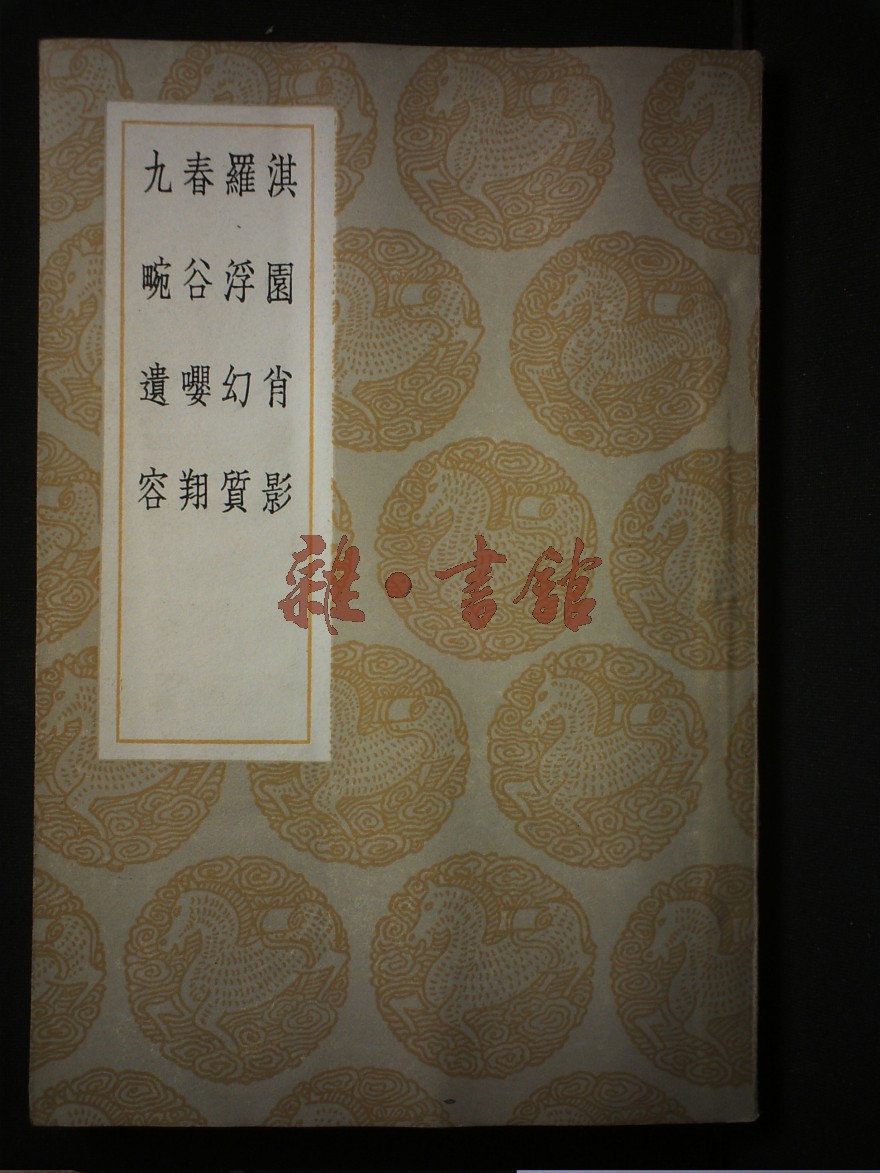 淇園肖影
羅浮幻質
春谷嚶翔
九畹遺容
雜·書館